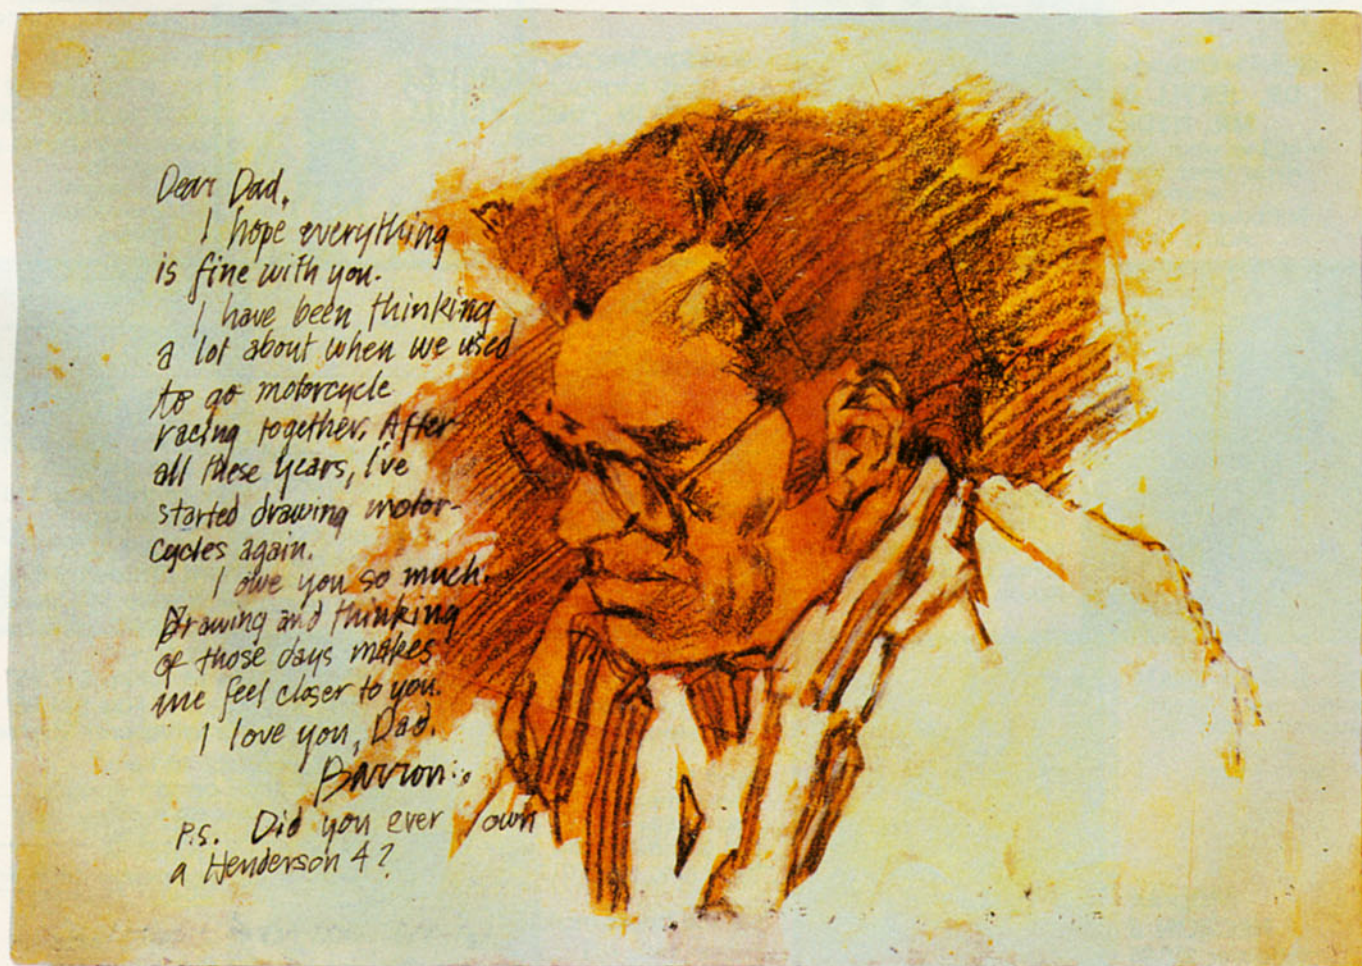 Dear Dad,
I hope everything
is fine with you.
I have been thinking
a lot about when we used
to go motorcycle
racing together. After
all these years, I've
started drawing motor-
cycles again.
I owe you so much.
Drawing and thinking
of those days makes
me feel closer to you.
I love you, Dad.
Barron
P.S. Did you ever own
a Henderson 4?